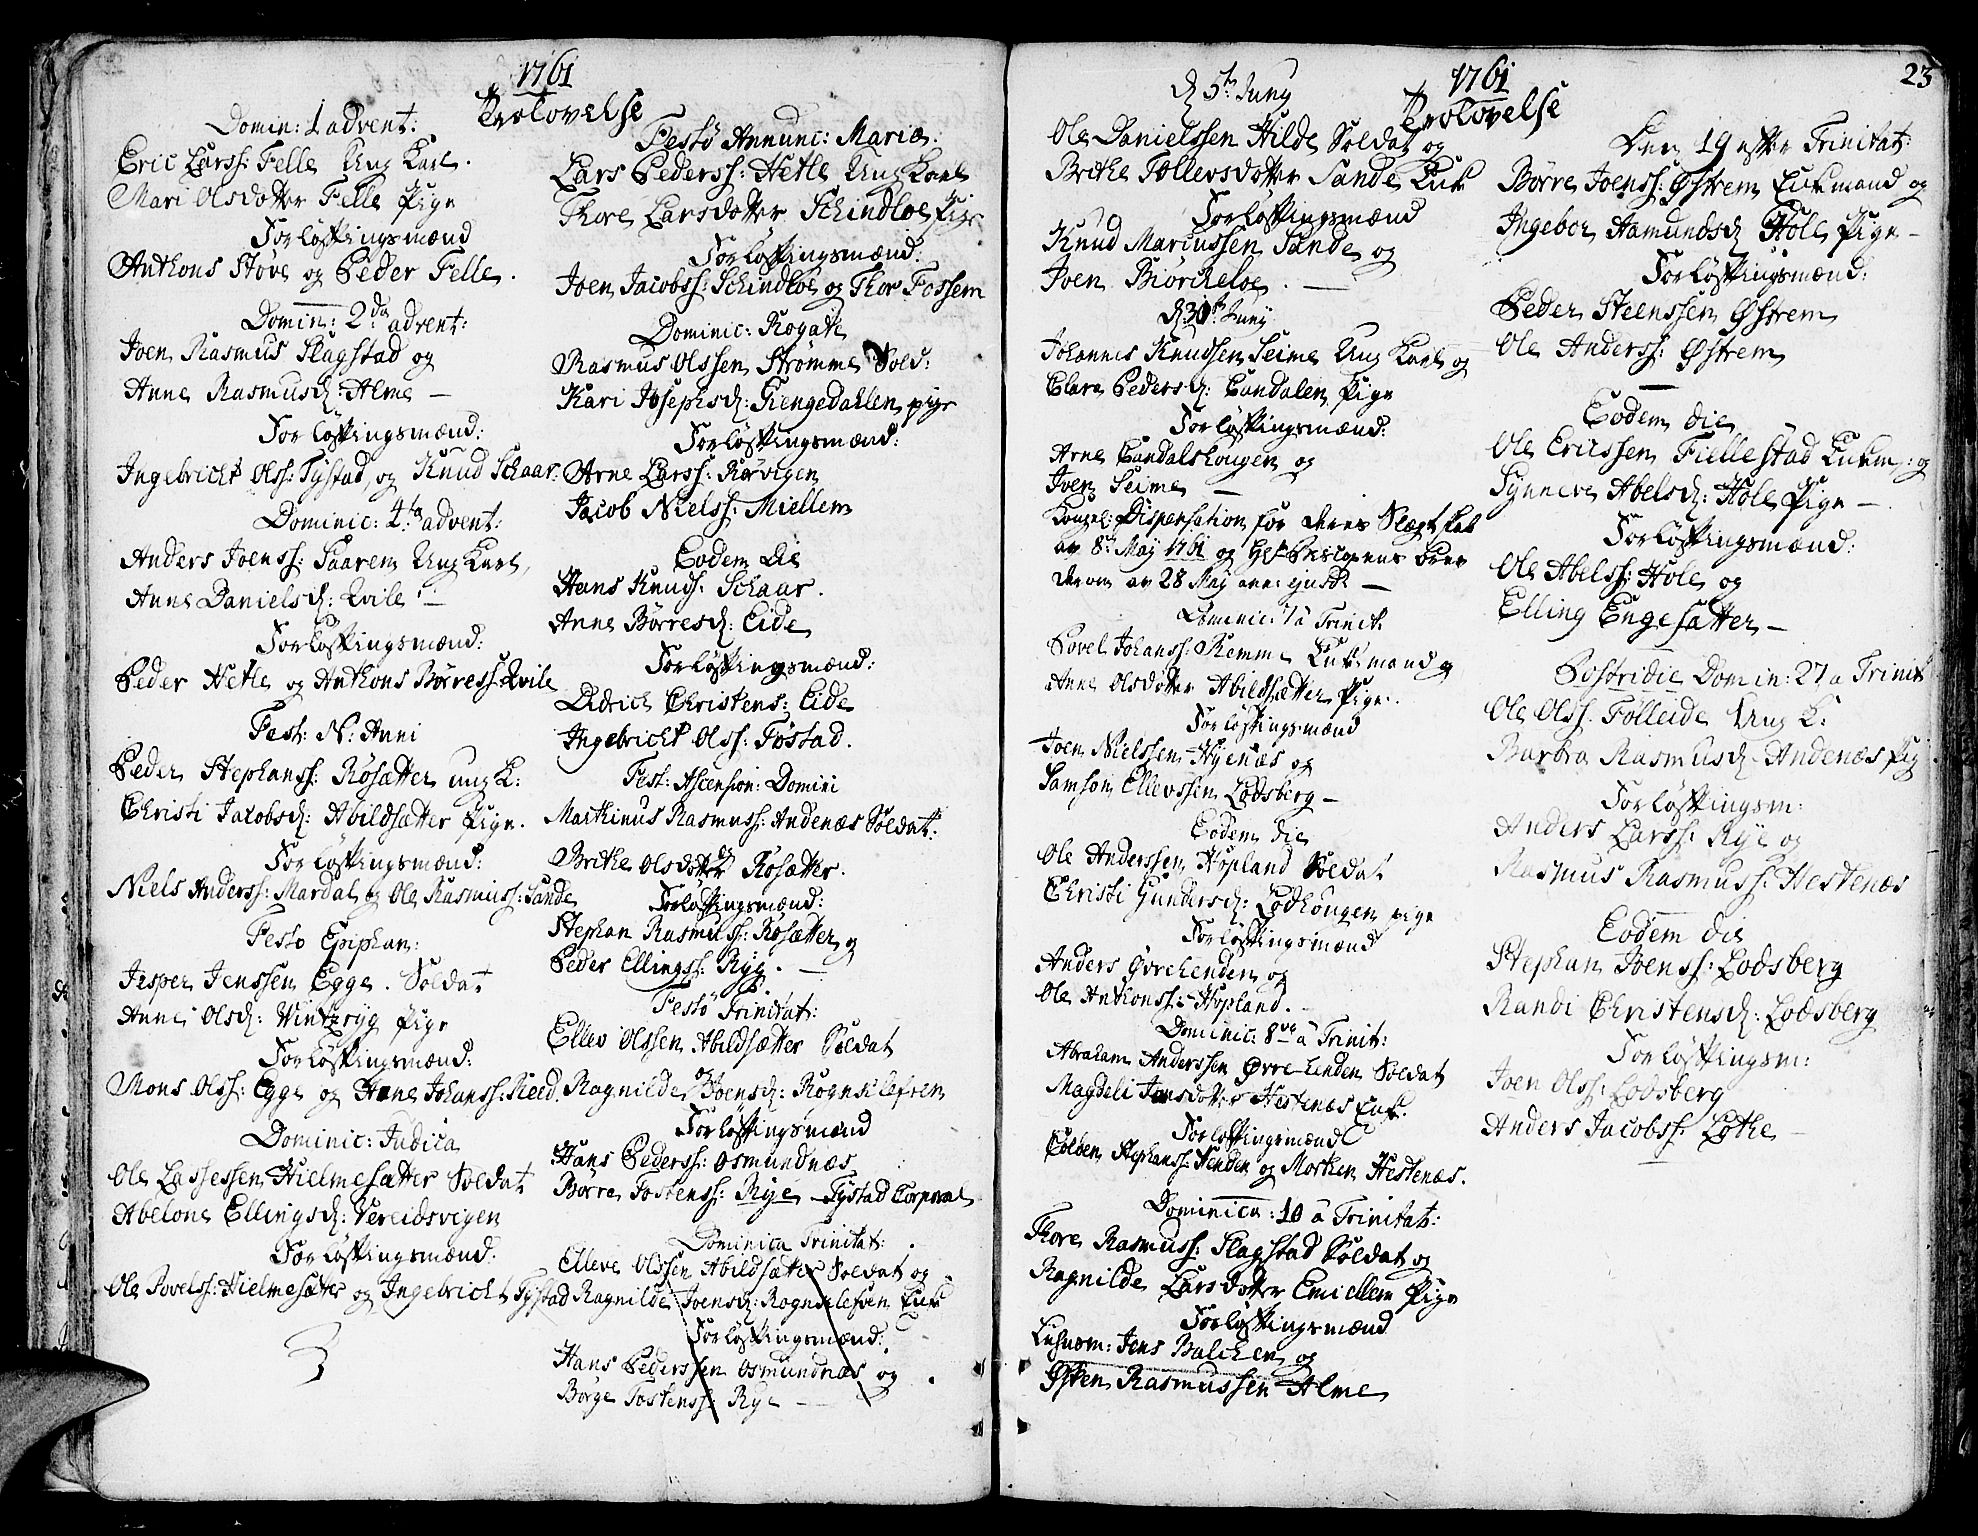 1761
Trolovelse
Domin: 1 advent:
Eric Larss: Felle Ung Karl.
Mari Olsdotter Felle Pige
Forløftingsmænd
Anthons Støve og Peder Felle.
Domin: 2da advent:
Joen Rasmus Slagstad og
Anne Rasmusd: Alme —
Forløftingsmænd:
Ingebricht Olss: Tystad, og Knud Schaar:
Dominic: 4ta advent:
Anders Joenss: Saarem Ung Karl,
Anne Danielsd: Qvile —
Forløftingsmænd:
Peder Hetle og Anthons Børress: Qvile
Fest: N: Anni
Peder Stephanss: Røsætter ung K:
Christi Jacobsd: Abildsætter Pige.
Forløftingsmænd:
Niels Anderss: Mardal og Ole Rasmuss: Sande
Festo Epiphan:
Jesper Jenssen Egge. Soldat
Anne Olsd: Winteryg Pige
Forløftingsmænd:
Mons Olss: Egge og Hans Johanss: Reed.
Dominic: Judica
Ole Lassessen Hielmesætter Soldat
Abelone Ellingsd: Vereidsvigen
Forløftingsmænd:
Ole Povelss: Hielmesætter og Ingebricht Tystad
Festo Annunc: Mariæ:
Lars Pederss: Hetle Ung Karl
Thore Larsdotter Schindloe Pige
Forløftingsmænd:
Joen Jacobss: Schindloe og Thor Fossem
Dominic: Rogate
Rasmus Olssen Strømme Sold:
Kari Josephsd: Fiengedahlen pige
Forløftingsmænd:
Arne Larss: Rørvigen
Jacob Nielss: Miellem
Eodem die
Hans Knuds: Schaar.
Anne Børresd: Eide
Forløftingsmænd:
Didrich Christens: Eide
Ingebricht Olss: Tostad.
Fest: Ascension: Domini
Marthinus Rasmuss: Andenæs Soldat:
og
Brithe Olsdotter Røsætter.
Forløftingsmænd:
Stephan Rasmuss: Røsætter og
Peder Ellingss: Ryg. —
Festo Trinitat:
Ellev Olssen Abildsætter Soldat
og
Ragnilde Joensd: Rognslefven
Forløftingsmænd
Hans Pederss: Osmundnæs
Børre Tostenss: Rye — Tystad Corporal
Dominica Trinitat:
Elleve Olssen Abildsætter Soldat og
Ragnilde Joensd: Rognslefven Enk
Forløftingsmænd:
Hans Pederssen Osmundnæs og
Børge Tostenss: Rye —
1761
Trolovelse
23
d 5t Juny
Ole Danielssen Hilde Soldat og
Brithe Tollevsdotter Sande Enk
Forløftingsmænd
Knud Mariussen Sande og
Joen Biørcheloe. —
d 30t Juny
Johannes Knudsen Seime Ung Karl og
Clara Pedersd: Eandalen Pige
Forløftingsmænd:
Arne Eandalshougen og
Iver Seime —
Kongel: Dispensation for deres Slegtskab
av 8t May 1761 og Hr Biskopens brev
derom av 28 May
Dominic: 7 a Trinit:
Povel Johanss: Remme Enkemand og
Anne Olsdotter Abildsætter Pige.
Forløftingsmænd
Joen Nielssen Hyenæs og
Samson Ellevssen Lodsberg —
Eodem die
Ole Anderssen Hopland Soldat
Christi Gundersd: Lodhougen pige
Forløftingsmænd
Anders Øvrehenden og
Ole Anthonss: Hopland.
Dominic: 8va a Trinit:
Abraham Anderssen Øvre-henden Soldat
Magdeli Jonsdotter Hestenæs Enk.
Forløftingsmænd
Colben Stephanss: Henden og Morten Hestenæs.
Dominica: 10 a Trinitat:
Thore Rasmuss: Slagstad Soldat og
Ragnilde Larsdotter Emiellem Pige
Forløftingsmænd
Lensm: Jens Balchen og
Østen Rasmussen Alme
Den 19 efter Trinitat:
Børre Joenss: Østrem Enkemand og
Ingebor Aamundsd Hole Pige —
Forløftingsmænd:
Peder Steenssen Østrem
Ole Anderss: Østrem
Eodem die
Ole Ericssen Fiellestad Enkm: og
Synneve Abelsd: Hole Pige —
Forløftingsmænd:
Ole Abelss: Hole og
Elling Engesætter —
Postridie Domin: 27 a Trinit
Ole Olss. Folleide Ung K:
Barbra Rasmusd: Andenæs Pig
Forløftingsm:
Anders Larss: Rye og
Rasmus Rasmuss: Hestenæs
Eodem die
Stephan Joenss: Lodsberg
Randi Christensd: Lodsberg
Forløftingsm:
Joen Olss: Lodsberg
Anders Jacobss: Lothe —